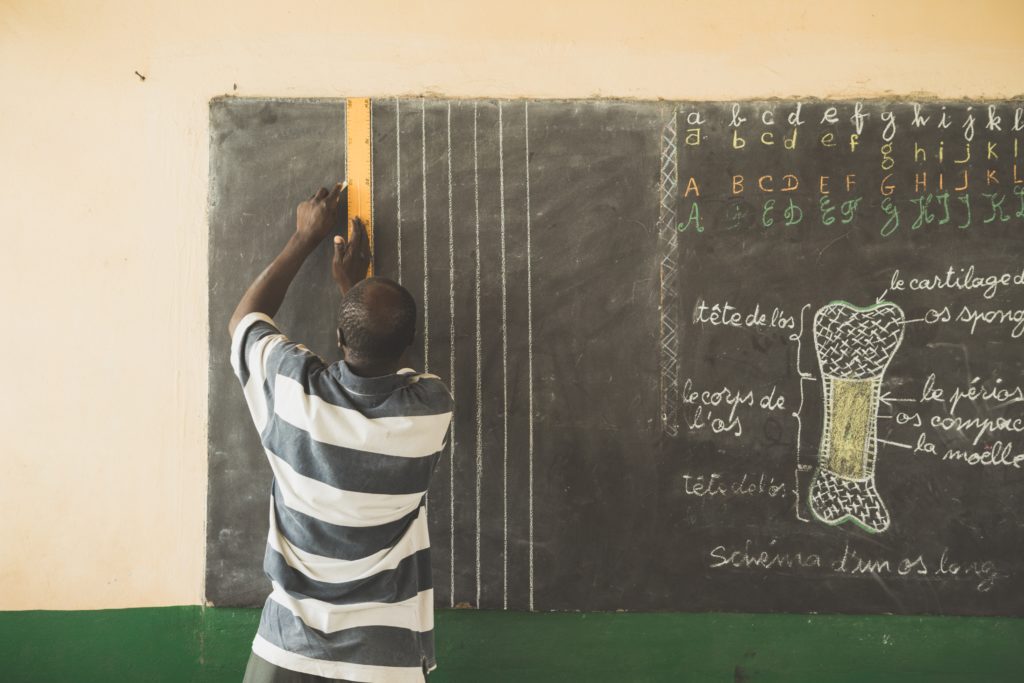 a b c d e f g h i j k l
a b c d e f g h i j k l
A B C D E F G H I J K L
A B C D E F G H I J K
le cartilage d
tête de l'os os spong
le corps de le périos
l'os os compac
la moëlle
tête de l'os
Schéma d'un os long